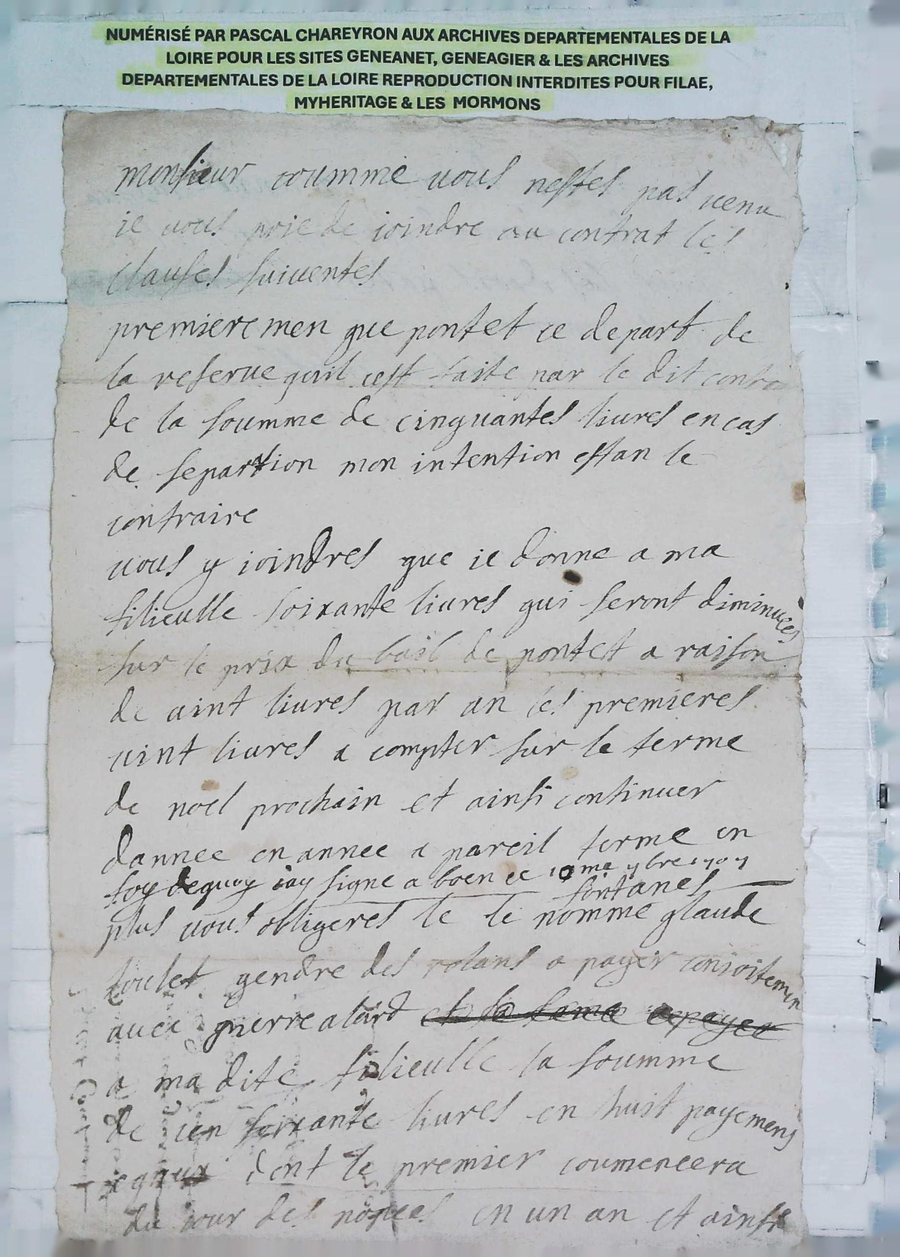 NUMÉRISÉ PAR PASCAL CHAREYRON AUX ARCHIVES DEPARTEMENTALES DE LA
LOIRE POUR LES SITES GENEANET, GENEAGIER & LES ARCHIVES
DEPARTEMENTALES DE LA LOIRE REPRODUCTION INTERDITES POUR FILAE,
MYHERITAGE & LES MORMONS
monsieur coumme vous nestes pas venu
ie vous prie de ioindre au contrat les
clauses suiventes
premieremen que pontet ce depart de
la reserve quil cest faite par le dit contra
de la soumme de cinquantes livres en cas
de separtion mon intention estan le
contraire
vous y ioindres que ie donne a ma
filieulle soixante livres qui seront diminuees
sur le prix du bail de pontet a raison
de vint livres par an les premieres
vint livres a compter sur le terme
de noel prochain et ainsi continuer
dannee en annee a pareil terme en
foy dequoy iay signe a boen ce 10me
fontanes
plus vous obligeres le le nomme glaude
gendre des rolans a payer conioitemen
avec pierre alard et la feme a payer
a ma dite filieulle la soumme
de cen soixante livres en huit payemens
egaux dont le premier coumencera
du iour des nopces en un an et ainsi